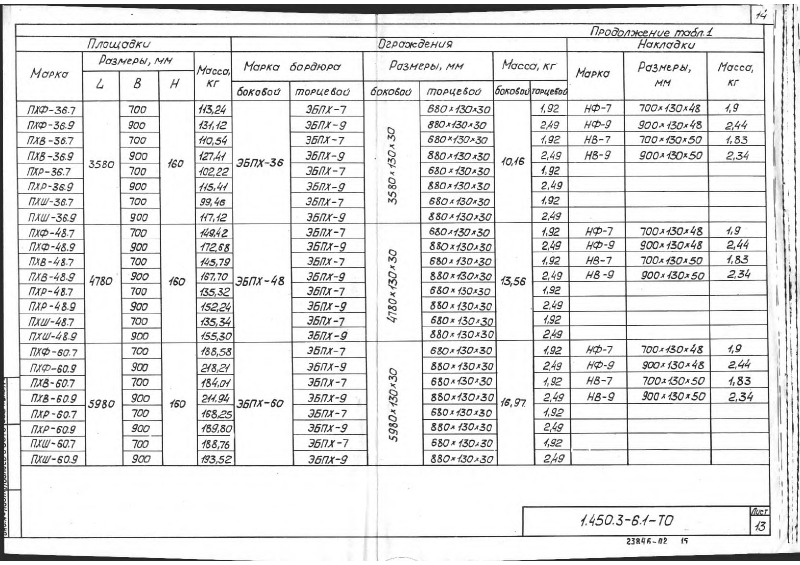 14
Продолжение табл.1
Площадки Ограждения Накладки
Марка Размеры, мм Масса, кг Марка бордюра Размеры, мм Масса, кг Марка Размеры, мм Масса, кг
L B H боковой торцевой боковой торцевой боковой торцевой
ПХФ-36.7 700 113,24 ЭБПХ-7 680×130×30 1,92 НФ-7 700×130×48 1,9
ПХФ-36.9 900 131,12 ЭБПХ-9 880×130×30 2,49 НФ-9 900×130×48 2,44
ПХВ-36.7 700 110,54 ЭБПХ-7 680×130×30 1,92 НВ-7 700×130×50 1,83
ПХВ-36.9 3580 900 160 127,41 ЭБПХ-36 ЭБПХ-9 3580×130×30 880×130×30 10,16 2,49 НВ-9 900×130×50 2,34
ПХР-36.7 700 102,22 ЭБПХ-7 680×130×30 1,92
ПХР-36.9 900 115,41 ЭБПХ-9 880×130×30 2,49
ПХШ-36.7 700 99,46 ЭБПХ-7 680×130×30 1,92
ПХШ-36.9 900 117,12 ЭБПХ-9 880×130×30 2,49
ПХФ-48.7 700 149,42 ЭБПХ-7 680×130×30 1,92 НФ-7 700×130×48 1,9
ПХФ-48.9 900 172,68 ЭБПХ-9 880×130×30 2,49 НФ-9 900×130×48 2,44
ПХВ-48.7 700 145,79 ЭБПХ-7 680×130×30 1,92 НВ-7 700×130×50 1,83
ПХВ-48.9 4780 900 160 167,70 ЭБПХ-48 ЭБПХ-9 4780×130×30 880×130×30 13,56 2,49 НВ-9 900×130×50 2,34
ПХР-48.7 700 135,32 ЭБПХ-7 680×130×30 1,92
ПХР-48.9 900 152,24 ЭБПХ-9 880×130×30 2,49
ПХШ-48.7 700 135,34 ЭБПХ-7 680×130×30 1,92
ПХШ-48.9 900 155,30 ЭБПХ-9 880×130×30 2,49
ПХФ-60.7 700 188,58 ЭБПХ-7 680×130×30 1,92 НФ-7 700×130×48 1,9
ПХФ-60.9 900 218,21 ЭБПХ-9 880×130×30 2,49 НФ-9 900×130×48 2,44
ПХВ-60.7 700 184,01 ЭБПХ-7 680×130×30 1,92 НВ-7 700×130×50 1,83
ПХВ-60.9 5980 900 160 211,94 ЭБПХ-60 ЭБПХ-9 5980×130×30 880×130×30 16,97 2,49 НВ-9 900×130×50 2,34
ПХР-60.7 700 168,25 ЭБПХ-7 680×130×30 1,92
ПХР-60.9 900 189,80 ЭБПХ-9 880×130×30 2,49
ПХШ-60.7 700 188,76 ЭБПХ-7 680×130×30 1,92
ПХШ-60.9 900 193,52 ЭБПХ-9 880×130×30 2,49
1.450.3-6.1-ТО
Лист
13
23846-02 15